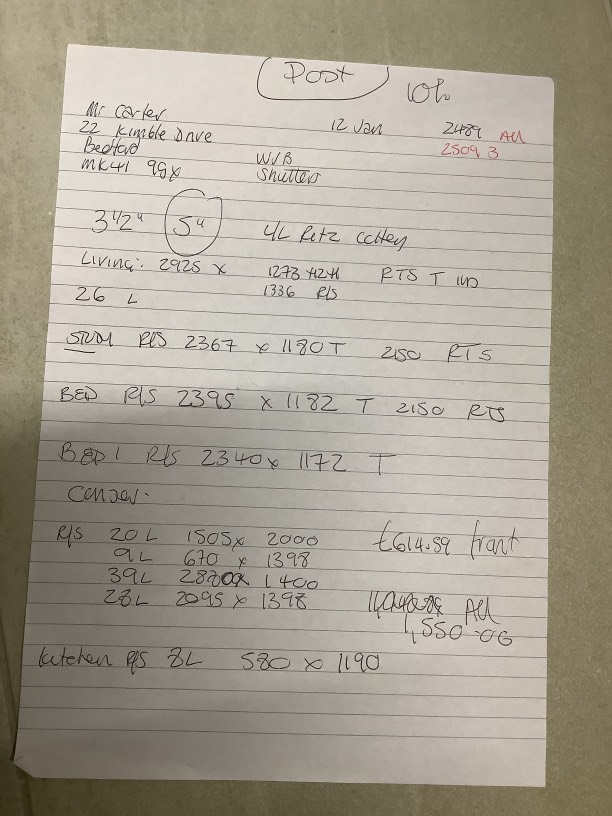 Post
Mr Carter 12 Jan 2489 All
22 Kimble Drive 2509 3
Bedford W/B
MK41 9SX Shutters
3 1/2" 5"
Living: 2925 x 1273 RTS T
26 L 1336 R/S
R/S 2367 x 1180 T 2150 RTS
BED R/S 2395 x 1182 T 2150 RTS
BED 1 R/S 2340 x 1172 T
Conser.
R/S 20 L 1505 x 2000 £614.59 front
9L 670 x 1398
39L x 1400
28L 2095 x 1398 All
1,550-06
Kitchen R/S 8L 580 x 1190